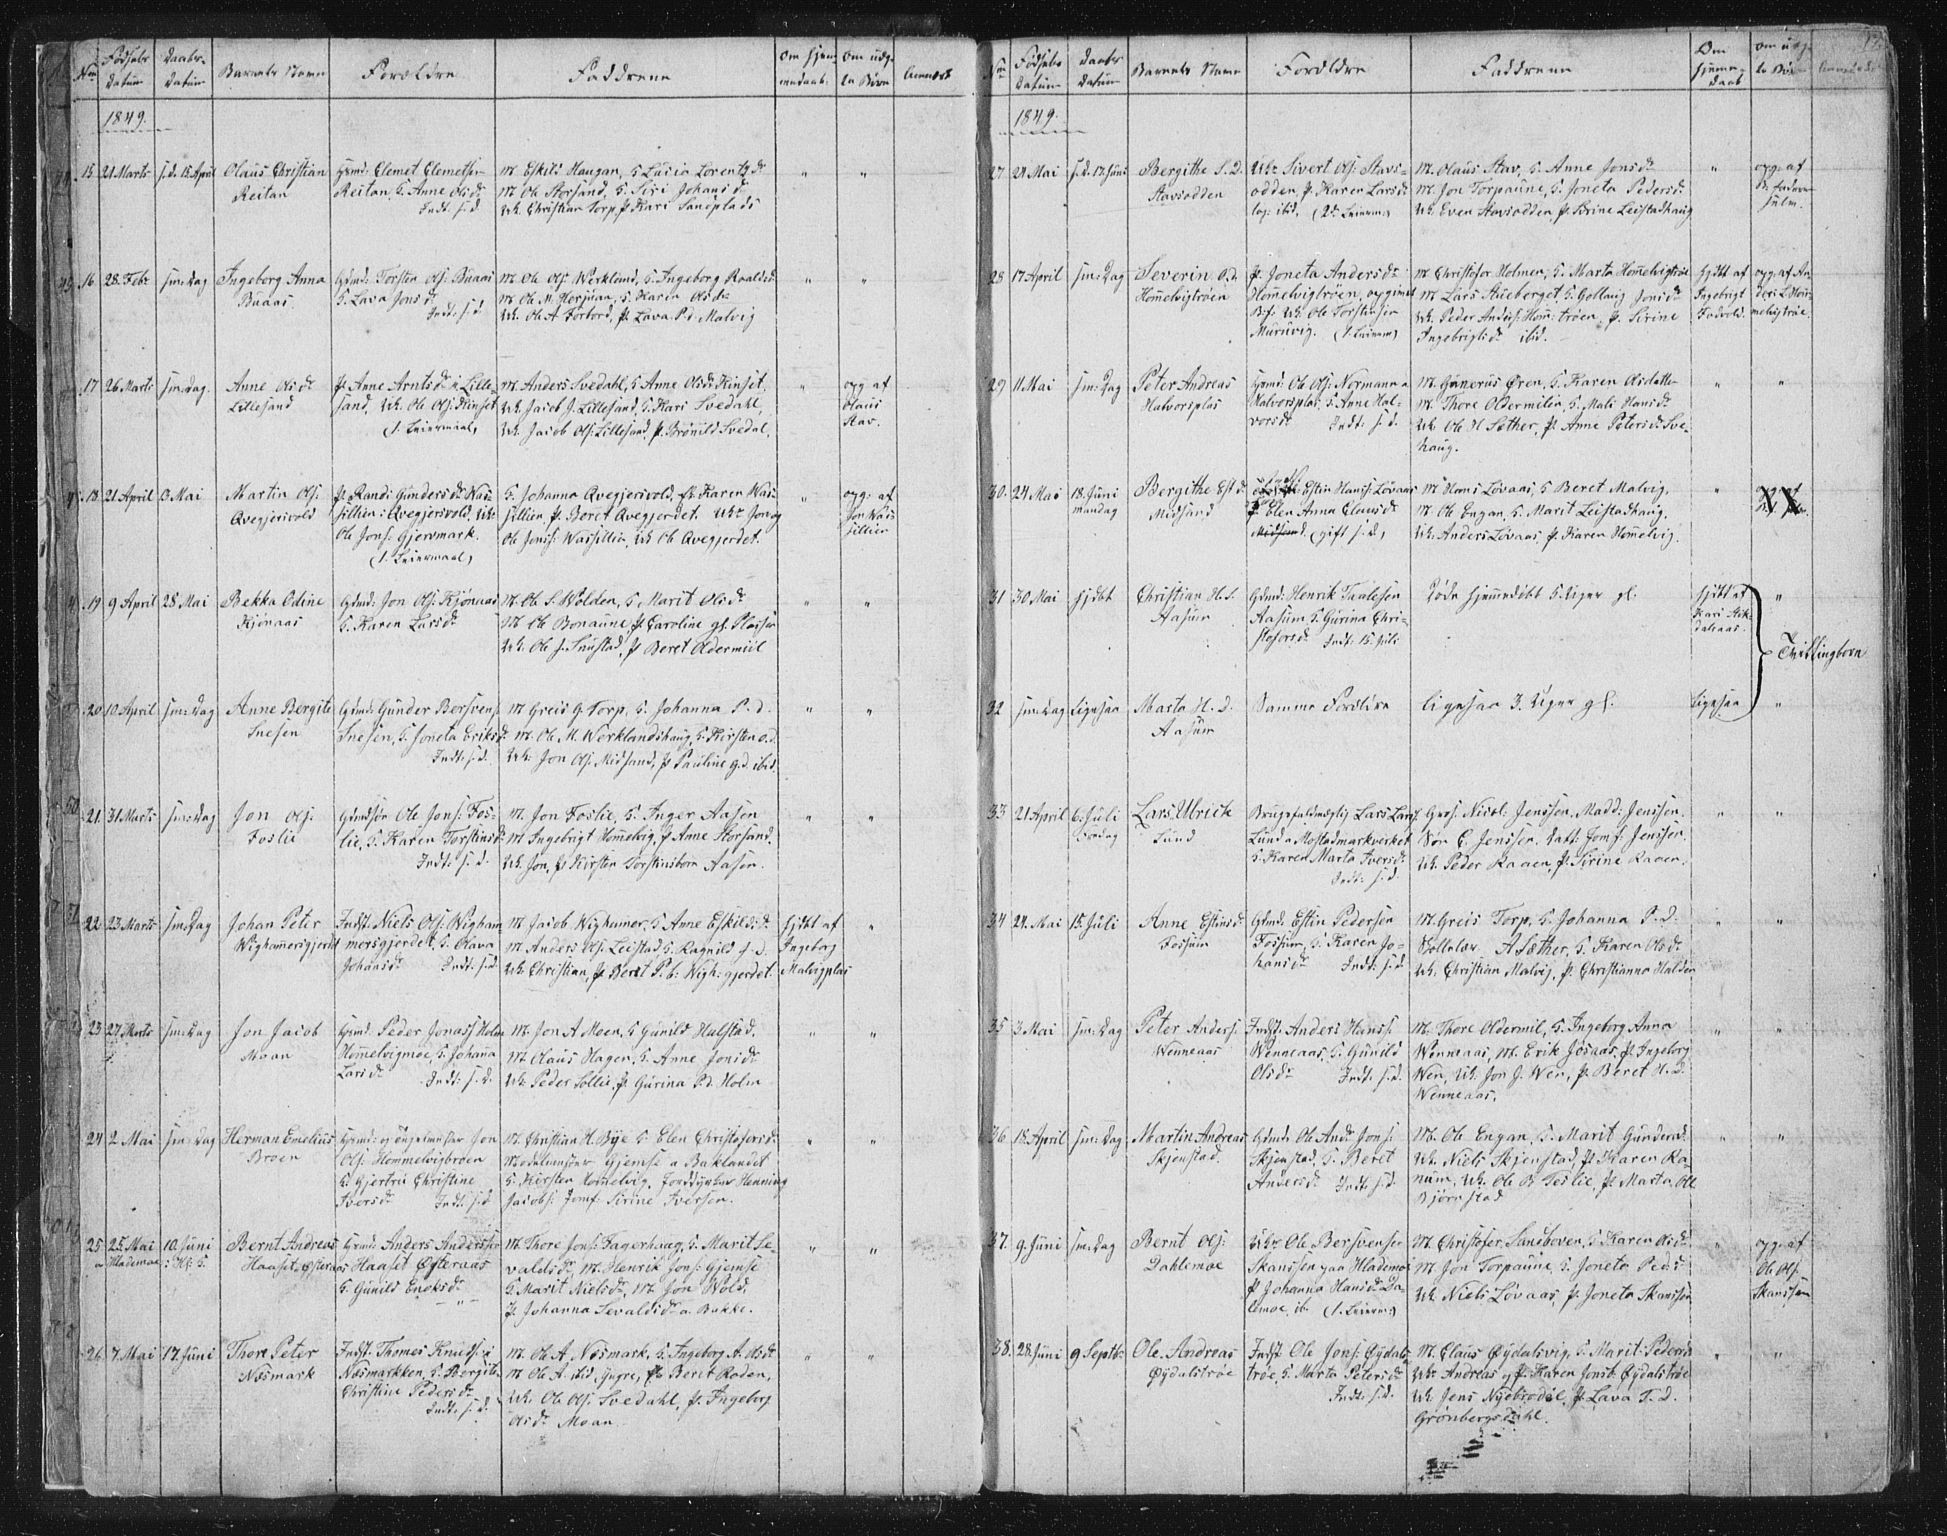 Nr. Fødsels Datum Daabs Datum Barnets Navn Forældre Faddrene om hjemmedaab om uægte Børn Anmærk
1849.
15 21 Marts s.d. 15 April Olaus Christian Reitan
Hsmd: Clemet Clemets. Reitan, K. Anne Olsd: Indt: s.d.
M. Eskils Haugan, K. Lusia Lorentzd:
M. Ole Storsand, K. Siri Johansd:
Uk. Christian Torp, P. Kari Sandplads
16 28. Febr sm: Dag Ingeborg Anna Buaas
Gdmd: Torsten Ols: Buaas K. Lava Jonsd: Indt: s.d.
M. Ole Ols: Werkland, K. Ingeborg Roaldsd:
M. Ole M. Herjuan, K. Karen Olsdr
Uk. Ole A Forbord, P. Lava P.d. Malvig
17 26 Marts sm: Dag. Anne Olsdr Lillesand
P. Anne Arntsdr i Lillesand, Uk. Ole Ols: Kinset (1. Leiermaal)
M. Anders Svedahl, K. Anne Olsd: Kinset,
Uk. Jacob J. Lillesand, K. Kari Svedahl,
Uk. Jacob Ols: Lillesand, P. Brønild Svedal.
opg af Olaus Stav.
18 21 April 3 Mai Martin Ols: Qvegjersvold
P. Randi Gundersdr Wassillien i Qvegjersvold, Uk. Ole Jons: Gjervmark. (1. Leiermaal)
K. Johanna Qvegjersvold, P. Karen Wassillien, P. Beret Qvegjerdet. Uk: Jon og
Ole Jons: Wassillien, Uk Ole Qvegjerdet.
opg: af Jon Wassillien
19 9 April 28 Mai Bekka Odine Kjønaas
Gdmd: Jon Ols: Kjønaas K. Karen Larsdr
M. Ole S. Wolden, K. Marit Olsdr
M Ole Bonaune, P. Caroline gl. Plassen
Uk: Ole J. Snustad, P Beret Oldermiil
20 10 April sm: Dag Anne Bergite Snesen
Gdmd: Gunder Bersvens: Snesen, K. Joneta Eriksdr Indt: s.d.
M. Greis G. Torp, K. Johanna P. d.
M. Ole M. Werklandshaug, K. Kirsten O.d.
Uk: Jon Ols: Midsand, P Pauline G.d. ibid
21. 31 Marts sm: Dag Jon Ols: Foslie
Gdmdsøn Ole Jons: Foslie, K. Karen Torstensdr Indt: s.d.
M. Jon Foslie, K. Inger Aasen
M. Ingebrigt Hommelvig, P Anne Storsand.
Uk. Jon, P Kirsten Torstensbørn Aasen.
22 23 Marts sm: Dag Johan Peter Wighamersgjerdet
Indst: Niels Ols: Wighammersgjerdet, K. Olava Johansdr Indt: s.d.
M. Jacob Wighamer, K. Anne Eskildsd:
M. Anders Ols: Leistad, K. Ragnild J.d.
Uk. Christian, P Beret P. b: Wigh: gjerdet.
hjdbt af Ingeborg Malvigplas
23 27 Marts sm: Dag Jon Jacob Moan
Hsmd: Peder Jonass: Holm Hommelvigmoe, K. Johana Larsdr Indt: s.d.
M. Jon A Moen, K Gunild Hulstad.
M. Olaus Hagen, K. Anne Jonsdr
Uk. Peder Sollie, P Gurina P.d. Holm
24 2. Mai sm: Dag Herman Emelius Broen
Hsmd: og Tugelmester Jon Ols: Hommelvigbroen K. Gjertru Christine Iversdr Indt: s.d.
M. Christian H. Bye K. Elen Christofersdr
Modelmester Gjemse a Baklandet
K. Kersten Hommelvig. Jorddyrker Henning
Jacobs: Jomf: Sirine Iversen.
25 25. Mai a Mademoe 10. Juni Bernt Andreas Haaset, Østeraas
Hsmd: Anders Andersen Haaset Østeraas K. Gunild Enoksdr
M. Thore Jons: Fagerhaug, K. Marit Sevaldsdr M. Henrik Jons: Gjemse
K. Marit Nielsdr, M. Jon Wold,
P. Johanna Sevaldsdr a Bakke.
26 7. Mai 17. Juni Thore Peter Næsmark
Indst: Thomes Knuds: i Næsmarkken, K. Bergite Christine Pedersdr Indt: s.d.
M. Ole A. Næsmark, K. Ingeborg A. Olsdr
M. Ole A. ibid yngre, P Beret Roden,
Uk. Ole Ols: Svedahl, P. Ingeborg
Olsdr Moan.
Nr. Fødsels Datum Daabs Datum Barnets Navn Forældre Faddrene Om hjemmedaab om uægte Børn
1849.
27 21 Mai s.d. 17. Juni Bergithe S. D. Stavsodden
Uk: Sivert Ols: Stavsodden, P. Karen Larsdr log: ibid. (2de Leierm:)
M. Olaus Stav, K. Anne Jonsdr
M. Jon Torpaune, K. Joneta Pedersdr
Uk. Even Stavsodden, P. Sirine Leistadhaug
opg af B. Faderen selv.
28 17 April sm: Dag Severin O.s. Hommelvigtrøen
P. Joneta Andersdr Hommelvigtrøen, opgivet B.f. Uk. Ole Torstensen Muruvig. (1. Leierm:)
M Christofer Holmen, K. Marta Hommelvigtrøe
M Lars Aueberget, K. Gollaug Jonsdr
Uk. Peder Anders: Hom: trøen, P. Sirine
Ingebrigtsdr ibid.
hjdbt af Ingebrigt Fadvold.
opg. af Anders L Hommelvigtrøe.
29 11 Mai sm: Dag Peter Andreas Halvorsplas
Hsmd: Ole Ols: Normann a Halvorsplas, K. Anne Halvorsdr Indt: s.d.
M. Gunerus Øren, K. Karen Olsdatter
M. Thore Oldermilen, K. Mali Hansdr
Uk. Ole H Sæther, P. Anne Petersdr Svehaug.
30. 24 Mai 18. Juni mandag Bergithe Est: d. Midsand
Estin Hans: Løvaas P. Elen Anna Clausdr Midsand. (gift s.d.)
M Hans Løvaas, K Beret Malvig,
M. Ole Engan, K. Marit Leistadhaug.
Uk: Anders Løvaas, P. Karen Hommelvig.
31 30 Mai hjdbt Christian H.s. Aasum
Gdmd: Henrik Paulsen Aasum K. Gurina Christofersdr Indt: 15 Juli
Døde hjemmedøbt 5. Uger gl.
hjdbt af Kari dalsaas.
Tvillingbørn
32 sm: Dag Ligesaa Marta H. D. Aasum
Samme Forældre
ligesaa 3. Uger gl.
Ligesaa
33 21 April 6. Juli Fredag Lars Ulrick Lund
Brugsfuldmægtig Lars Lars: Lund a Mostadmarkverket K. Karen Marta Iversdr Indt: s.d.
Gros: Nicol: Jenssen. Madd: Jenssen.
Søn E. Jenssen. Datt: Jomf: Jenssen.
Uk. Peder Kaaen, P. Sirine Kaaen.
34 24. Mai 15. Juli Anne Estinsdr Fossum
Gdmd: Estin Pedersen Fossum, K. Karen Johansdr Indt: s.d.
M. Greis Torp, K. Johanna P. D.
Skollelær. A Sæther, K. Karen Olsdr
Uk. Christian Malvig, P. Christianna Halden
35 3. Mai sm: Dag Peter Anders: Wenneaas
Indst: Anders Hans: Wenneaas, K. Gunild Olsdr Indt: s.d.
M. Thore Oldermil, K. Ingeborg Anna
Wenneaas, M. Erik Jøsaas, P. Ingeborg
Wen, Uk: Jon J. Wen, P. Beret H. D.
Wenneaas.
36 18. April sm: Dag Martin Andreas Skjenstad
Gdmd: Ole Andr Jons: Skjenstad, K. Beret Andersdr Indt: s.d.
M. Ole Engan, K. Marit Gundersd.
Uk. Niels Skjenstad, P. Karen Ranum, Uk. Ole B Teslie, P. Marta Ol:
Bjørnstad
37. 9. Juni sm: Dag Bernt Ols: Dahlemoe
Uk: Ole Bersvensen Skanssen paa Hlademoe P Johanna Hansdr Dalemoe, ib. (1. Leierm:)
M. Christofer Saneboven, K Karen Olsdr
M. Jon Torpaune, K. Joneta Pedsd:
Uk Niels Løvaas, P. Joneta Skansen
opg. af Ole Ols: Skanssen
38. 28. Juni 9 Septbr Ole Andreas Øydalstrøe
Indst Ole Jons: Øydalstrøe, K. Marta Petersdr Indt: s.d.
M. Claus Øydalsvig, K. Marit Pedersdr
Uk: Andreas og P. Karen Jonsb Øydalstrøe
Uk Jens Nyebrodal, P. Lava T. D.
Grønbergsdahl.